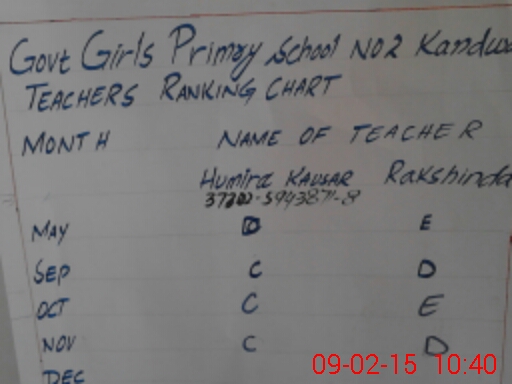 Govt Girls Primary School NO2
TEACHERS RANKING CHART
MONTH NAME OF TEACHER
Humira KAUSAR Rakshinda
MAY D E
SEP C D
OCT C E
NOV C D
DEC
09-02-15 10:40